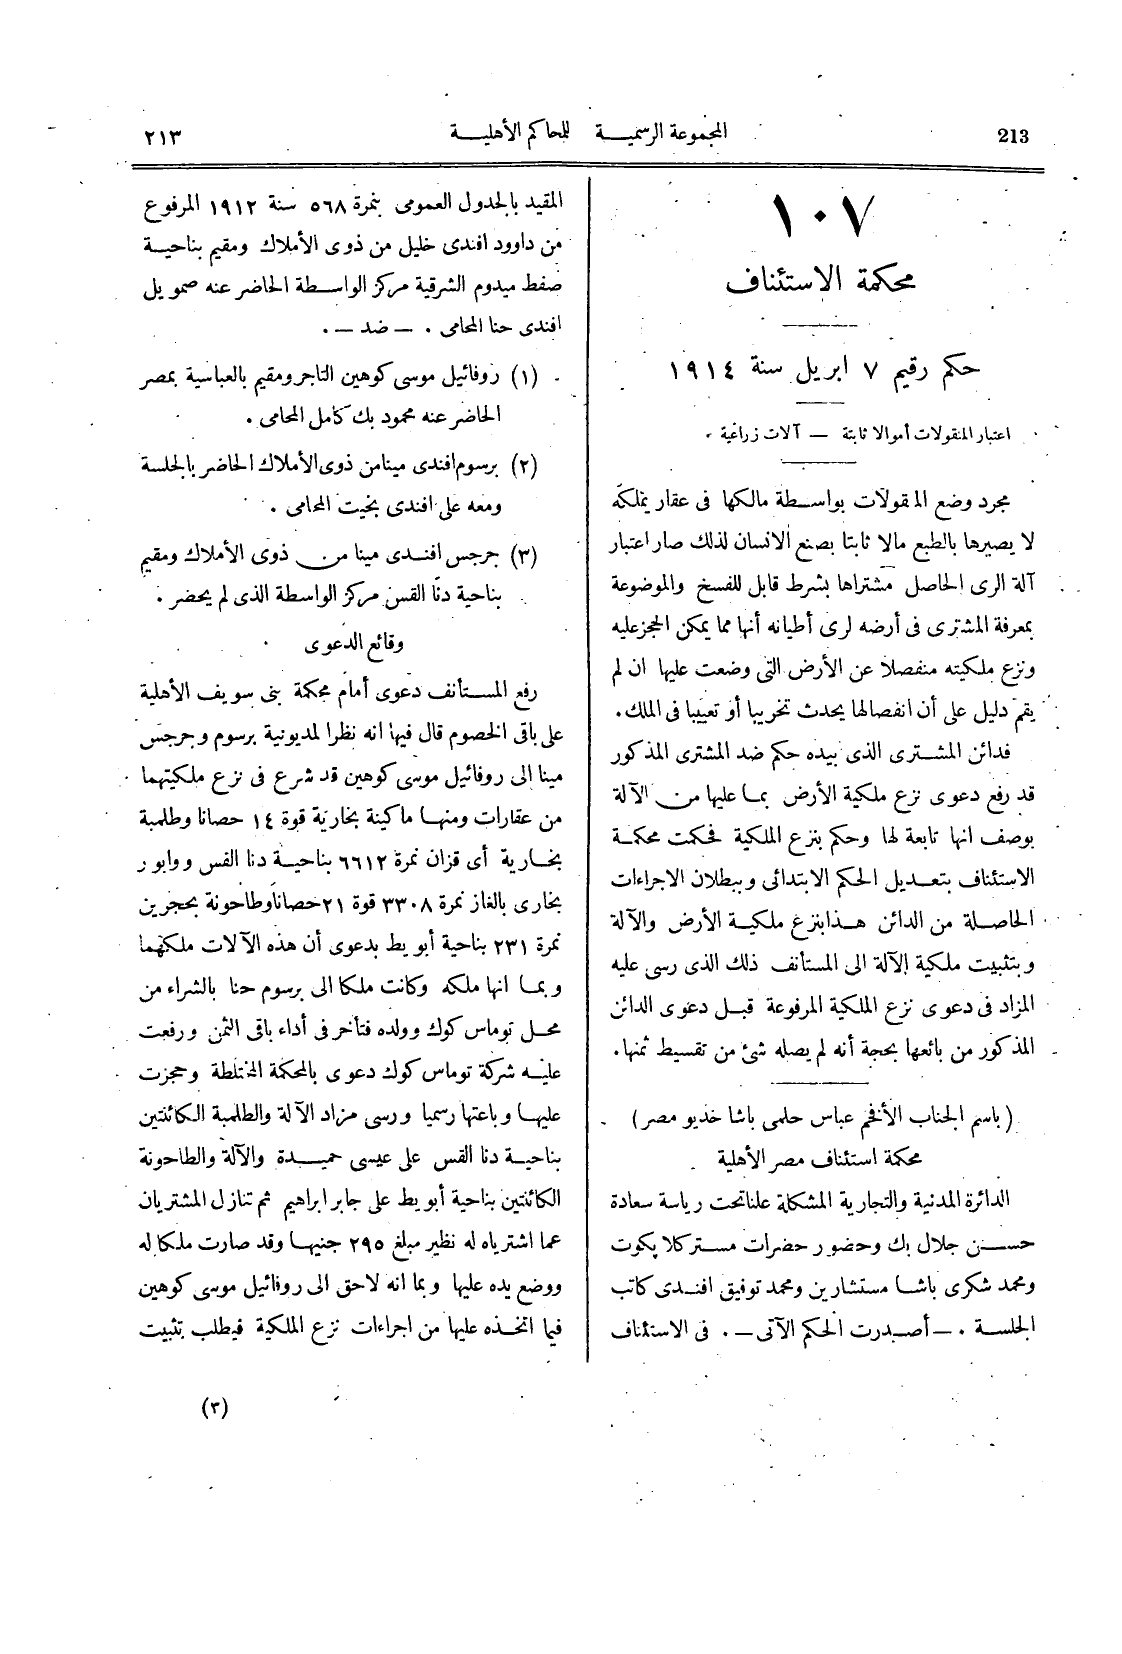 213
المجموعة الرسمية للمحاكم الأهلية
٢١٣
١٠٧
محكمة الاستئناف
حكم رقيم ٧ ابريل سنة ١٩١٤
اعتبار المنقولات أموالا ثابتة — آلات زراعية .
مجرد وضع المقولات بواسطة مالكها فى عقار يملكه
لا يصيرها بالطبع مالا ثابتا بصنع الانسان لذلك صار اعتبار
آلة الرى الحاصل مشتراها بشرط قابل للفسخ والموضوعة
بمعرفة المشترى فى أرضه لرى أطيانه أنها مما يمكن الحجز عليه
ونزع ملكيته منفصلا عن الأرض التى وضعت عليها ان لم
يقم دليل على أن انفصالها يحدث تخريبا أو تعييبا فى الملك.
فدائن المشترى الذى بيده حكم ضد المشترى المذكور
قد رفع دعوى نزع ملكية الأرض بما عليها من الآلة
بوصف انها تابعة لها وحكم بنزع الملكية فحكمت محكمة
الاستئناف بتعديل الحكم الابتدائى وببطلان الاجراءات
الحاصلة من الدائن هذا بنزع ملكية الأرض والآلة
وبتثبيت ملكية الآلة الى المستأنف ذلك الذى رسى عليه
المزاد فى دعوى نزع الملكية المرفوعة قبل دعوى الدائن
المذكور من بائعها بحجة أنه لم يصله شئ من تقسيط ثمنها.
(باسم الجناب الأفخم عباس حلمى باشا خديو مصر)
محكمة استئناف مصر الأهلية
الدائرة المدنية والتجارية المشكلة علنا تحت رياسة سعادة
حسن جلال بك وحضور حضرات مستر كلا يكوت
ومحمد شكرى باشا مستشارين ومحمد توفيق افندى كاتب
الجلسة . — أصدرت الحكم الآتى — . فى الاستئناف
المقيد بالجدول العمومى بنمرة ٥٦٨ سنة ١٩١٢ المرفوع
من داوود افندى خليل من ذوى الأملاك ومقيم بناحية
صفط ميدوم الشرقية مركز الواسطة الحاضر عنه صمويل
افندى حنا المحامى . — ضد — .
(١) روفائيل موسى كوهين التاجر ومقيم بالعباسية بمصر
الحاضر عنه محمود بك كامل المحامى .
(٢) برسوم افندى مينا من ذوى الأملاك الحاضر بالجلسة
ومعه على افندى بخيت المحامى .
(٣) جرجس افندى مينا من ذوى الأملاك ومقيم
بناحية دنّا القس مركز الواسطة الذى لم يحضر .
وقائع الدعوى
رفع المستأنف دعوى أمام محكمة بنى سويف الأهلية
على باقى الخصوم قال فيها انه نظرا لمديونية برسوم وجرجس
مينا الى روفائيل موسى كوهين قد شرع فى نزع ملكيتهما
من عقارات ومنها ماكينة بخارية قوة ١٤ حصانا وطلمبة
بخارية أى قزان نمرة ٦٦١٢ بناحية دنا القس ووابور
بخارى بالغاز نمرة ٣٣٠٨ قوة ٢١ حصانا وطاحونة بحجرين
نمرة ٢٣١ بناحية أبويط بدعوى أن هذه الآلات ملكهما
وبما انها ملكه وكانت ملكا الى برسوم حنا بالشراء من
محل توماس كوك وولده فتأخر فى أداء باقى الثمن ورفعت
عليه شركة توماس كوك دعوى بالمحكمة المختلطة وحجزت
عليها وباعتها رسميا ورسى مزاد الآلة والطلمبة الكائنتين
بناحية دنا القس على عيسى حميدة والآلة والطاحونة
الكائنتين بناحية أبويط على جابر ابراهيم ثم تنازل المشتريان
عما اشترياه له نظير مبلغ ٢٩٥ جنيها وقد صارت ملكا له
ووضع يده عليها وبما انه لاحق الى روفائيل موسى كوهين
فيما اتخذه عليها من اجراءات نزع الملكية فيطلب تثبيت
(٣)